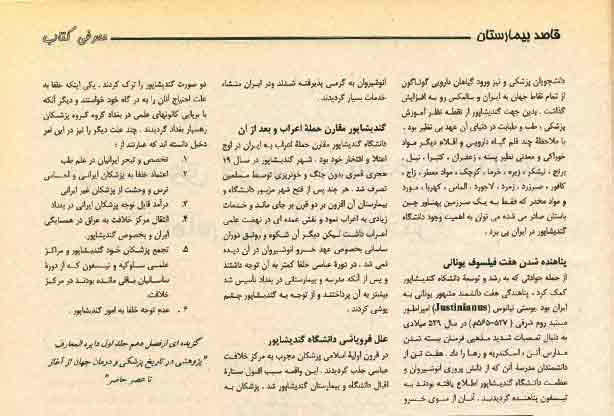 قاصد بیمارستان
معرفی کتاب
دانشجویان پزشکی و نیز ورود گیاهان داروئی گوناگون
از تمام نقاط جهان به ایران و سالمکس رو به افزایش
گذاشت . بدین جهت گندیشاپور از نقطه نظر آموزش
پزشکی ، طب و طبابت در دنیای آن عهد بی نظیر بود .
با ملاحظهٔ چند قلم گیاه داروئی و اقلام دیگر مواد
خوراکی و معدنی نظیر پسته ، زعفران ، کتیرا ، نیل ،
برنج ، نیشکر ، زیره ، خرما ، کوچک ، مواد معطر ، زاج ،
کافور ، صبرزرد ، زمرد ، لاجورد ، الماس ، کهربا ، مورد
و مواد مخدر که فقط به یک سرزمین پهناور چین
باستان صادر می شده می توان به اهمیت وجود دانشگاه
گندیشاپور در ایران پی برد .
پناهنده شدن هفت فیلسوف یونانی
از جمله حوادثی که به رشد و توسعهٔ دانشگاه گندیشاپور
کمک کرد ، پناهندگی هفت دانشمند مشهور یونانی به
ایران بود . یوستی نیانوس (Justinianus) امپراطور
مستبد روم شرقی ( ۵۲۷-۵۶۵م) در سال ۵۲۹ میلادی
به دنبال تعصبات شدید مذهبی فرمان بسته شدن
مدارس آتن ، اسکندریه و رها را داد . هفت تن از
دانشمندان مدرسهٔ آتن که از دانش پروری انوشیروان و
عظمت دانشگاه گندیشاپور اطلاع یافته بودند به
تیسفون پناهنده گردیدند . آنان از سوی خسرو
انوشیروان به گرمی پذیرفته شدند ودر ایران منشاء
خدمات بسیار گردیدند .
گندیشاپور مقارن حملهٔ اعراب و بعد از آن
دانشگاه گندیشاپور مقارن حملهٔ اعراب به ایران در اوج
اعتلا و افتخار خود بود . شهر گندیشاپور در سال ۱۹
هجری قمری بدون جنگ و خونریزی توسط مسلمین
تصرف شد . هر چند پس از فتح شهر مزبور دانشگاه و
بیمارستان آن افزون بر دو قرن بر جای ماند و خدمات
زیادی به اعراب نمود و نقش عمده ای در نهضت علمی
اعراب داشت لیکن دیگر آن شکوه و رونق دوران
ساسانی بخصوص عهد خسرو انوشیروان در آن دیده
نمی شد . در دورهٔ عباسی خلفا کمتر به آن توجه داشتند
و پس از آنکه مدرسه و بیمارستانی در بغداد تأسیس شد
بیشتر به آن پرداختند و از توجه به گندیشاپور چشم
پوشی کردند .
علل فروپاشی دانشگاه گندیشاپور
در قرون اولیهٔ اسلامی پزشکان مجرب به مرکز خلافت
عباسی جلب گردیدند . این واقعه سبب افول ستارهٔ
اقبال دانشگاه و بیمارستان گندیشاپور شد . پزشکان به
دو صورت گندیشاپور را ترک کردند . یکی اینکه خلفا به
علت احتیاج آنان را به در گاه خود خواستند و دیگر آنکه
با برپایی کانونهای علمی در بغداد گروه گروه پزشکان
رهسپار بغداد گردیدند . چند علت دیگر را نیز در این امر
دخیل دانسته اند که عبارتند از :
۱. تخصص و تبحر ایرانیان در علم طب
۲. اعتماد خلفا به پزشکان ایرانی و احساس
ترس و وحشت از پزشکان غیر ایرانی
۳. درآمد قابل توجه پزشکان ایرانی در بغداد
۴. انتقال مرکز خلافت به عراق در همسایگی
ایران و بخصوص گندیشاپور.
۵. تجمع پزشکان خود گندیشاپور و مراکز
علمی سلوکیه و تیسفون که از دورهٔ
ساسانیان باقی مانده بودند در مرکز
خلافت
۶. عدم توجه خلفا به امور گندیشاپور .
گزیده ای ازفصل دهم جلد اول دایره المعارف
"پژوهشی در تاریخ پزشکی و درمان جهان از آغاز
تا عصر حاضر"